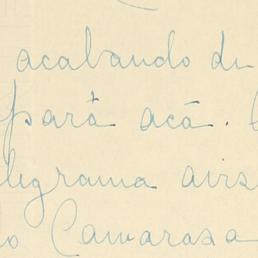 acabando de
pará acá.
legrama avis
o Camarasa